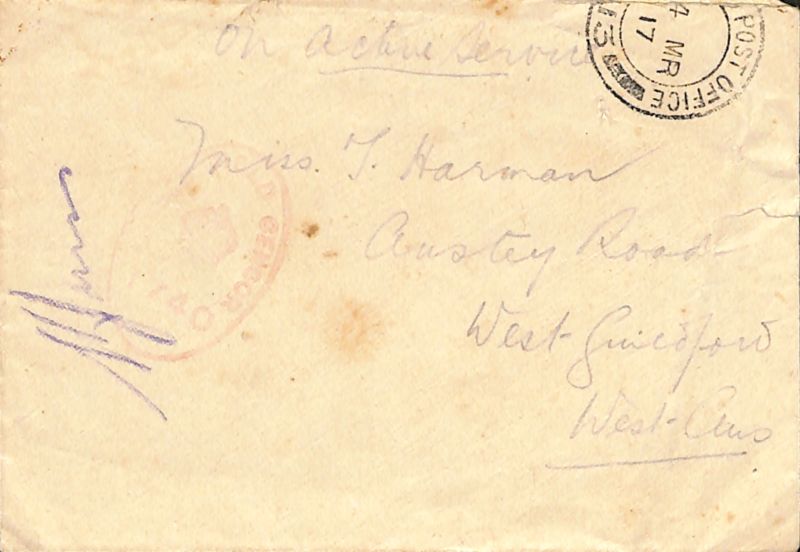 On Active Service
POST OFFICE
4 MR
17
13
Miss. T. Harman
Anstey Road
West Guildford
West Aus
CENSOR
740